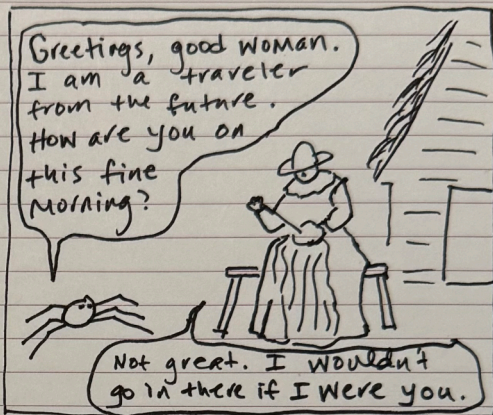 Greetings, good woman.
I am a traveler
from the future.
How are you on
this fine
morning?
Not great. I wouldn't
go in there if I were you.